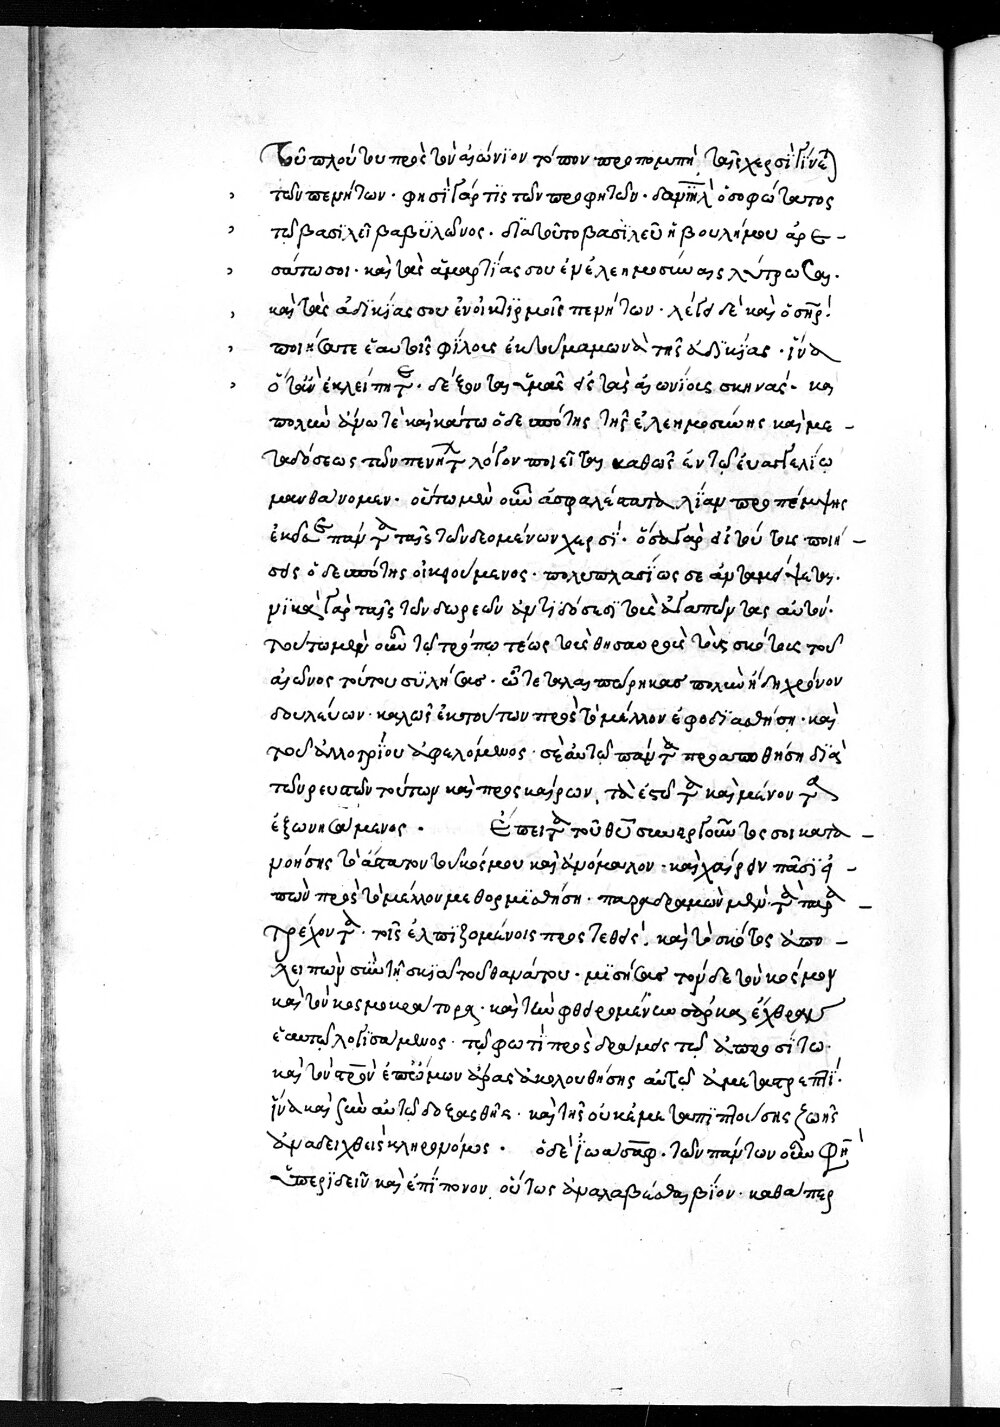 τοῦ πλούτου πρὸς τὸν αἰώνιον τόπον προπομπὴ, ταῖς χερσὶ γίνεται
τῶν πενήτων· φησὶ γάρ τις τῶν προφητῶν· δανιὴλ ὁ σοφώτατος
τῷ βασιλεῖ βαβυλῶνος· διατοῦτο βασιλεῦ ἡ βουλή μου ἀρε-
σάτω σοι· καὶ τὰς ἁμαρτίας σου ἐν ἐλεημοσύναις λύτρωσαι·
καὶ τὰς ἀδικίας σου ἐν οἰκτιρμοῖς πενήτων· λέγει δὲ καὶ ὁ σηρ·
ποιήσατε ἑαυτοῖς φίλους ἐκ τοῦ μαμωνᾶ τῆς ἀδικίας· ἵνα
ὅταν ἐκλείπητε· δέξονται ὑμᾶς εἰς τὰς αἰωνίους σκηνάς· καὶ
πολὺν ἄνω τὲ καὶ κάτω ὁ δεσπότης τῆς ἐλεημοσύνης καὶ με-
ταδόσεως τῶν πενήτων λόγον ποιεῖται καθὼς ἐν τῷ εὐαγγελίῳ
μανθάνομεν· οὕτω μὲν οὖν ἀσφαλέστατα λίαν προπέμψης
ἐκεῖσε πάντα ταῖς τῶν δεομένων χερσί· ὅσα γὰρ εἰς τούτους ποιή-
σεις ὁ δεσπότης οἰκειούμενος· πολυπλασίως σε ἀνταμείψεται·
νικᾶ γὰρ ταῖς τῶν δωρεῶν ἀντιδόσεσι τοὺς ἀγαπῶντας αὐτόν·
τούτω μὲν οὖν τῷ τρόπῳ τέως τοὺς θησαυροὺς τοῦ σκότους τοῦ
αἰῶνος τούτου συλήσας· ὧ τεταλαιπώρηκας πολὺν ἤδη χρόνον
δουλεύων· καλῶς ἐκ τούτων πρὸς τὸ μέλλον ἐφοδιασθήση· καὶ
τοῦ ἀλλοτρίου ἀφελόμενος· σεαυτῷ πάντα προαποθήση διὰ
τῶν ρευστῶν τούτων καὶ προσκαίρων, τὰ ἑστῶτα καὶ μένοντα
ἐξωνησάμενος· ἔπειτα τοῦ θυ συνεργοῦντός σοι κατα-
νοήσης τὸ ἄστατον τοῦ κόσμου καὶ ἀνόμαλον· καὶ χαίρειν πᾶσιν εἰ-
πὼν πρὸς τὸ μέλλον μεθορμισθήση· παραδραμὼν μὲν· τὰ παρα-
τρέχοντα· τοῖς ἐλπιζομένοις προστεθείς· καὶ τὸ σκότος ἀπο-
λειπὼν σὺν τῇ σκιᾷ τοῦ θανάτου· μισήσας τόνδε τὸν κόσμον
καὶ τὸν κοσμοκράτορα· καὶ τὴν φθειρομένην σάρκα ἐχθρὰν
ἑαυτῷ λογισάμενος· τῷ φωτὶ προσδραμεῖς τῷ ἀπροσίτω·
καὶ τὸν σρον ἐπώμων ἄρας ἀκολουθήσης αὐτῷ ἀμετατρεπτί·
ἵνα καὶ σὺν αὐτῷ δοξασθῆς· καὶ τῆς οὐκέτι μεταπιπτούσης ζωῆς
ἀναδειχθεὶς κληρονόμος· ὁ δὲ ἰωάσαφ· τῶν πάντων οὖν φησὶ
ὑπεριδεῖν καὶ ἐπίπονον οὕτως ἀναλαβέσθαι βίον· καθάπερ